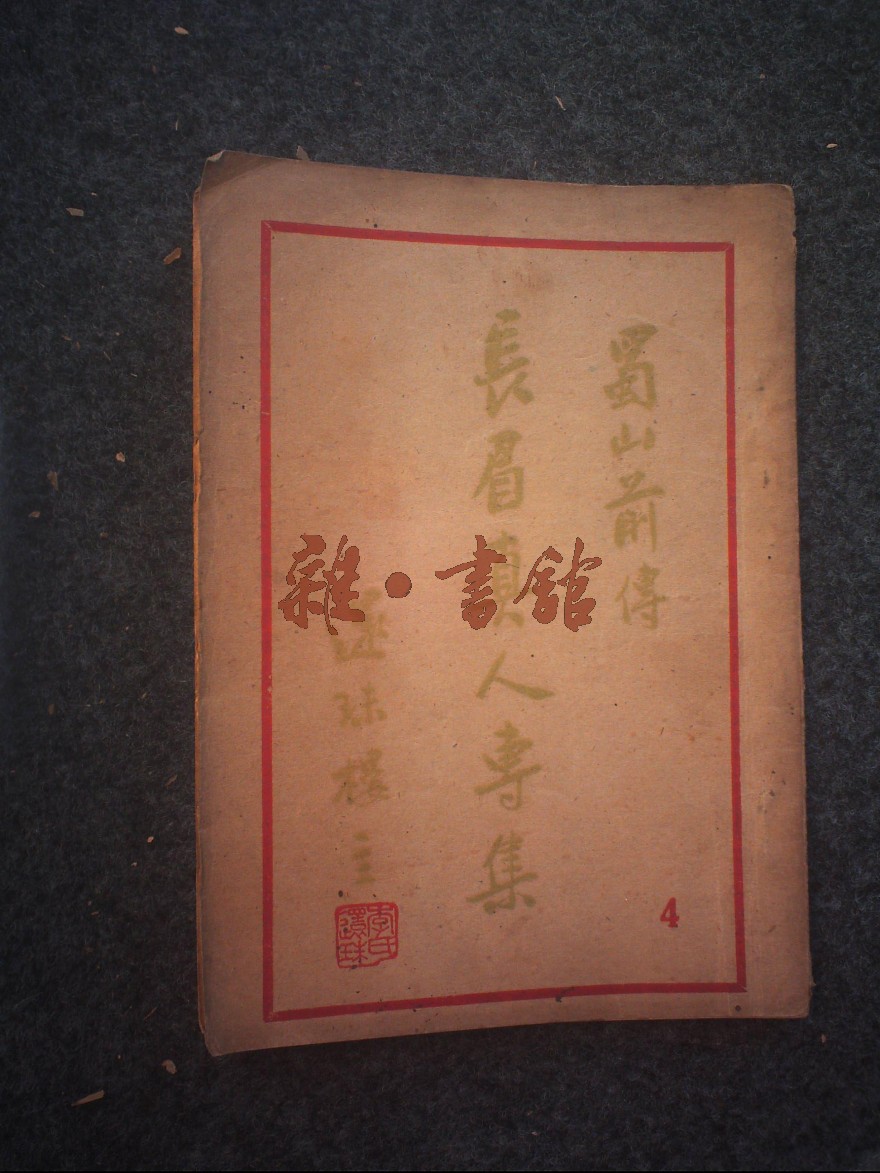 蜀山前傳
長眉真人專集
還珠樓主
李氏還珠
4
雜·書舘